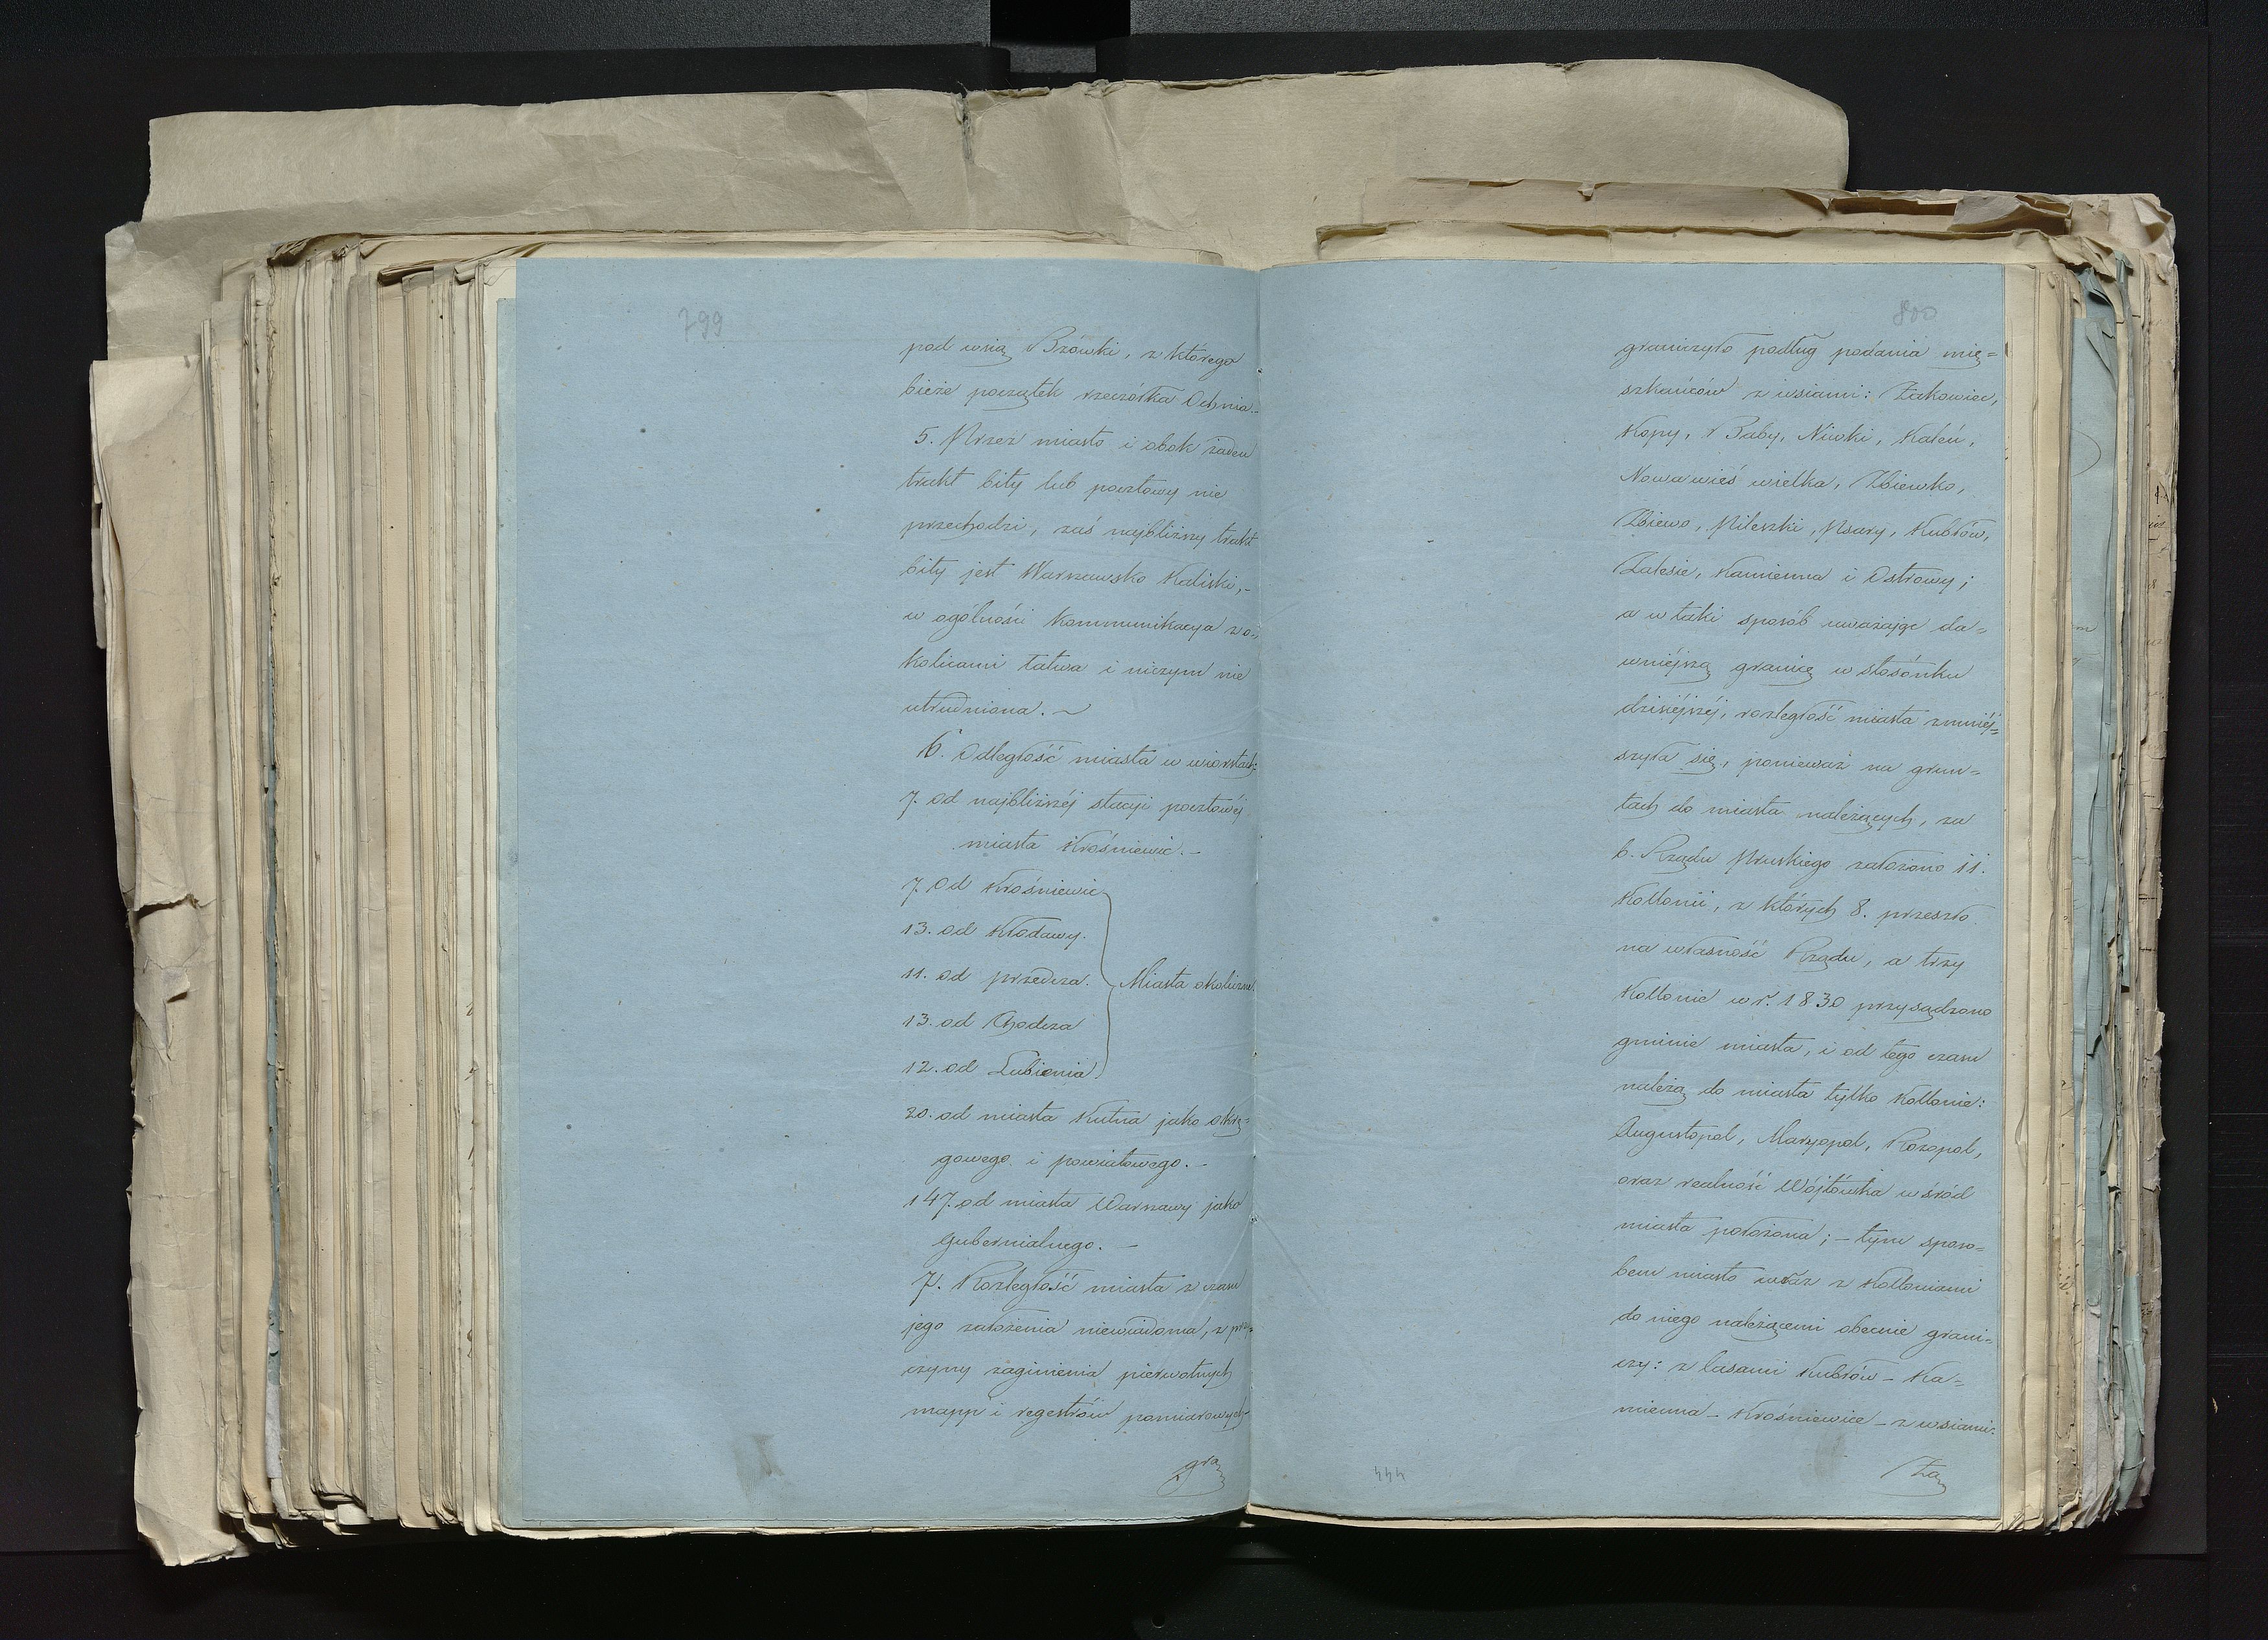 799
pod wsią Bzówki, z którego
bieże początek rzeczółka Ochnia.-
5. Przez miasto i obok żaden
trakt bity lub pocztowy nie
przechodzi, zaś najbliższy trakt
bity jest Warszawsko Kaliski,-
w ogólności kommunikacya z o=
kolicami łatwa i niczym nie
utrudniona. ~
6. Odległość miasta w wiorstach:
7. od najbliższéj stacyi pocztowéj
miasta Krośniewic.-
7. od Krośniewic
13. od Kłodawy.
11. od Przedcza. Miasta okoliczne
13. od Chodcza
12. od Lubienia
20. od miasta Kutna jako okrę=
gowego i powiatowego.-
147. od miasta Warszawy jako
gubernialnego. -
7. Rozległość miasta z czasu
jego założenia niewiadoma, z przy=
czyny zaginienia pierwotnych
mapp i regestrów pomiarowych
gra
800
graniczyło podług podania mię=
szkańców z wsiami: Żakowiec,
Kopy, Baby, Niwki, Kaleń,
Nowawieś wielka, Zbiewko,
Zbiewo, Pileszki, Psary, Kubłów,
Zalesie, Kamienna i Ostrowy;
a w taki sposób uważając da=
wniéjszą granicę w stosónku
dzisiéjszéj, rozległość miasta zmniéj=
szyła się, ponieważ na grun=
tach do miasta należących, za
b. Rządu Pruskiego założono 11.
Kollonii, z których 8. przeszło
na własność Rządu, a trzy
Kollonie w r. 1830 przysądzono
gminie miasta, i od tego czasu
należą do miasta tylko Kollonie:
Augustopol, Maryopol, Rozopol,
oraz realność Wójtówka wśród
miasta położona; - tym sposo=
bem miasto wraz z Kolloniami
do niego należącemi obecnie grani=
czy: z lasami Kubłów - Ka=
mienna - Krośniewice - z wsiami:
Ża
444